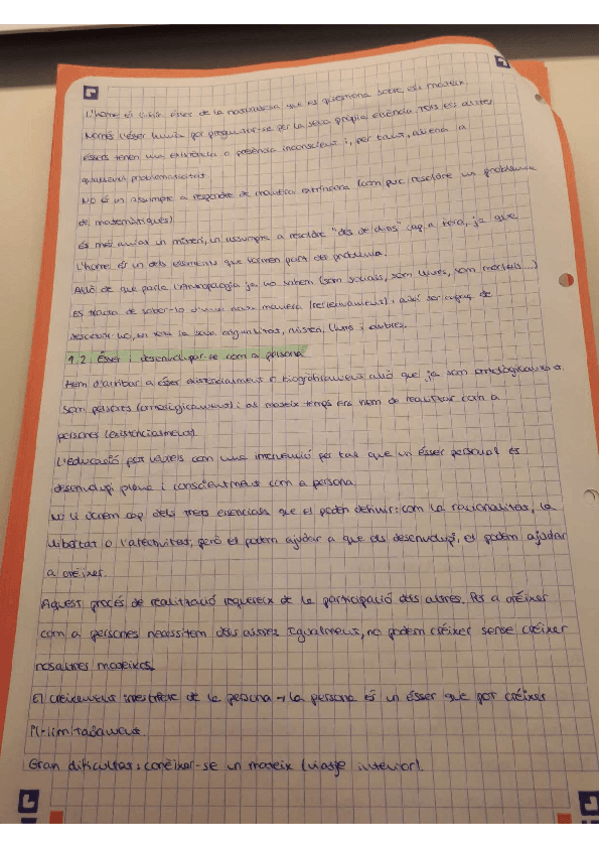 L'home és l'únic ésser de la naturalesa que es qüestiona sobre ell mateix.
Només l'ésser humà pot preguntar-se per la seva pròpia essència. Tots els altres
éssers tenen una existència o presència inconscient i, per tant, aliena a
qualsevol problematicitat.
NO és un assumpte a respondre de manera extrínseca (com puc resoldre un problema
de matemàtiques)
És més aviat un misteri, un assumpte a resoldre "des de dins" cap a fora, ja que
l'home és un dels elements que formen part del problema.
Allò de que parla l'Antropologia ja ho sabem (som socials, som lliures, som mortals...)
Es tracta de saber-lo d'una nova manera (reflexivament), així ser capaç de
descobrir ho, en tota la seva dignitat, misteri, llums i ombres.
1.2 Ésser i desenvolupar-se com a persona
Hem d'arribar a ésser existencialment o biogràficament allò que ja som ontològicament.
Som persones (ontològicament) i al mateix temps ens hem de realitzar com a
persones (existencialment).
L'educació pot veure's com una intervenció per tal que un ésser personal es
desenvolupi plena i conscientment com a persona.
No li donem cap dels trets essencials que el poden definir: com la racionalitat, la
llibertat o l'afectivitat, però el podem ajudar a que els desenvolupi, el podem ajudar
a créixer.
Aquest procés de realització requereix de la participació dels altres. Per a créixer
com a persones necessitem dels altres. Igualment, no podem créixer sense créixer
nosaltres mateixos.
El creixement irrestricte de la persona → la persona és un ésser que pot créixer
il·limitadament.
Gran dificultat: conèixer-se un mateix (viatje interior).